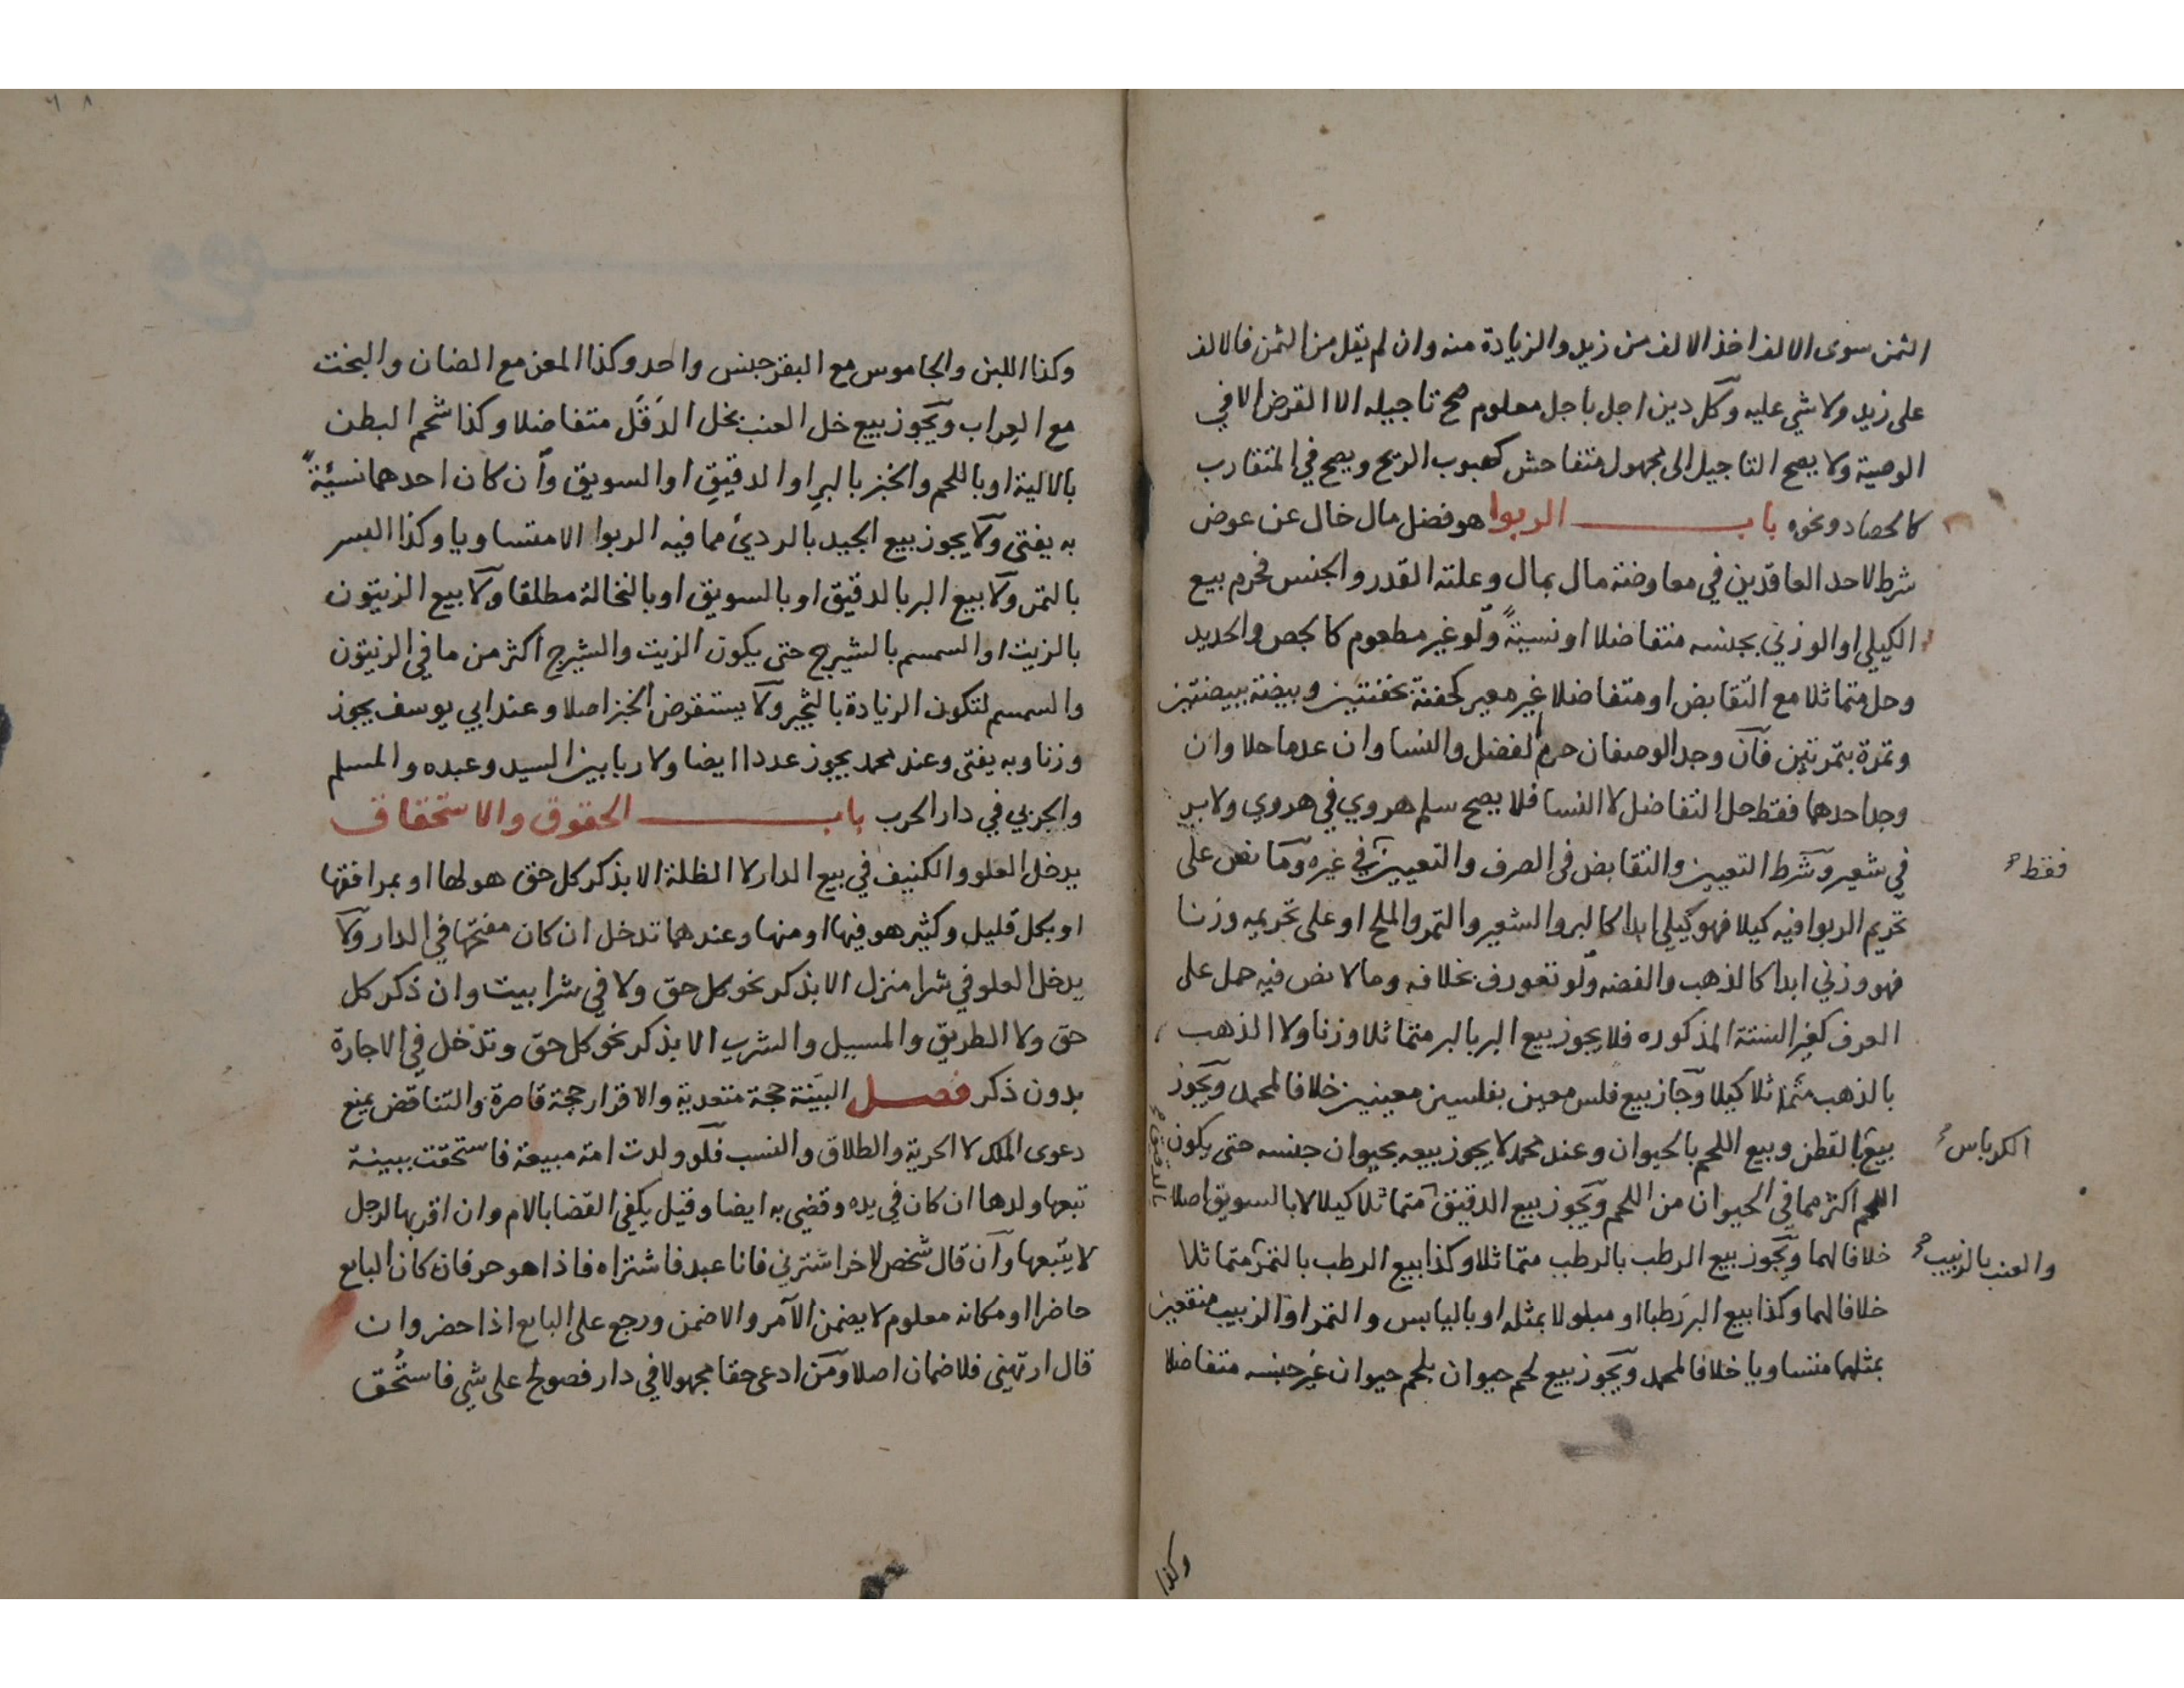 الثمن سوى الالف اخذ الالف من زيد والزيادة منه وان لم يقل من الثمن فالالف
على زيد ولا شي عليه وكل دين اجل باجل معلوم صح تاجيله الا القرض الا في
الوصية ولا يصح التاجيل الى مجهول متفاحش كهبوب الريح ويصح في المتقارب
كالحصاد ونحوه باب الربوا هو فضل مال خال عن عوض
شرط لاحد العاقدين في معاوضة مال بمال وعلته القدر والجنس فحرم بيع
الكيلي او الوزني بجنسه متفاضلا او نسيئةً ولو غير مطعوم كالجص والحديد
وحل متماثلا مع التقابض او متفاضلا غير معير كحفنة بحفنتين وبيضة ببيضتين
وتمرة بتمرتين فان وجد الوصفان حرم الفضل والنسا وان عدما حلا وان
وجد احدهما فقط حل التفاضل لا النسا فلا يصح سلم هروي في هروي ولا بر
في شعير وشرط التعيين والتقابض في الصرف والتعيين في غيره وما نص على
فقط
تحريم الربوا فيه كيلا فهو كيلي ابدا كالبر والشعير والتمر والملح او على تحريمه وزنا
فهو وزني ابدا كالذهب والفضه ولو تعورف بخلافه وما لا نص فيه حمل على
العرف كغير الستة المذكوره فلا يجوز بيع البر بالبر متماثلا وزنا ولا الذهب
بالذهب متماثلا كيلا وجاز بيع فلس معين بفلسين معينين خلافا لمحمد ويجوز
بيع بالقطن وبيع اللحم بالحيوان وعند محمد لا يجوز بيعه بحيوان جنسه حتى يكون
الكرباس
اللحم اكثر مما في الحيوان من اللحم ويجوز بيع الدقيق متماثلا كيلا لا بالسويق اصلا
بالدقيق
خلافا لهما ويجوز بيع الرطب بالرطب متماثلا وكذا بيع الرطب بالتمر متماثلا
والعنب بالزبيب
خلافا لهما وكذا بيع البر رَطبا او مبلولا بمثله او باليابس والتمر او الزبيب منقعين
بمثلهما متساويا خلافا لمحمد ويجوز بيع لحم حيوان بلحم حيوان غير جنسه متفاضلا
وكذا
وكذا اللبن والجاموس مع البقر جنس واحد وكذا المعز مع الضان والبخت
مع العِراب ويجوز بيع خل العنب بخل الدَقَل متفاضلا وكذا شحم البطن
بالالية او باللحم والخبز بالبرِ او الدقيقِ او السويق وان كان احدهما نسيئةً
به يفتى ولا يجوز بيع الجيد بالردئ مما فيه الربوا الا متساويا وكذا البسر
بالتمر ولا بيع البر بالدقيق او بالسويق او بالنخالة مطلقا ولا بيع الزيتون
بالزيت او السمسم بالشيرج حتى يكون الزيت والشيرج اكثر من ما في الزيتون
والسمسم لتكون الزيادة بالثجير ولا يستقرض الخبز اصلا وعند ابي يوسف يجوز
وزنا وبه يفتى وعند محمد يجوز عددا ايضا ولا ربا بين السيد وعبده والمسلم
والحربي في دار الحرب باب الحقوق والاستحقاق
يدخل العلو والكنيف في بيع الدار لا الظلة الا بذكر كل حق هو لها او بمرافقها
او بكل قليل وكثير هو فيها او منها وعندهما تدخل ان كان مفتحها في الدار ولا
يدخل العلو في شرا منزل الا بذكر نحو كل حق ولا في شرا بيت وان ذكر كل
حق ولا الطريق والمسيل والشرب الا بذكر نحو كل حق وتدخل في الاجارة
بدون ذكر فصل البيَنة حجة متعدية والاقرار حجة قاصرة والتناقض يمنع
دعوى الملك لا الحرية والطلاق والنسب فلو ولدت امة مبيعة فاستحقت ببينة
تبعها ولدها ان كان في يده وقضي به ايضا وقيل يكفي القضا بالام وان اقر بها لرجل
لا يتبعها وان قال شخص لاخر اشترني فانا عبد فاشتراه فاذا هو حر فان كان البايع
حاضرا او مكانه معلوم لا يضمن الآمر والا ضمن ورجع على البايع اذا حضر وان
قال ارتهني فلا ضمان اصلا ومن ادعى حقا مجهولا في دار فصولح على شي فاستُحق